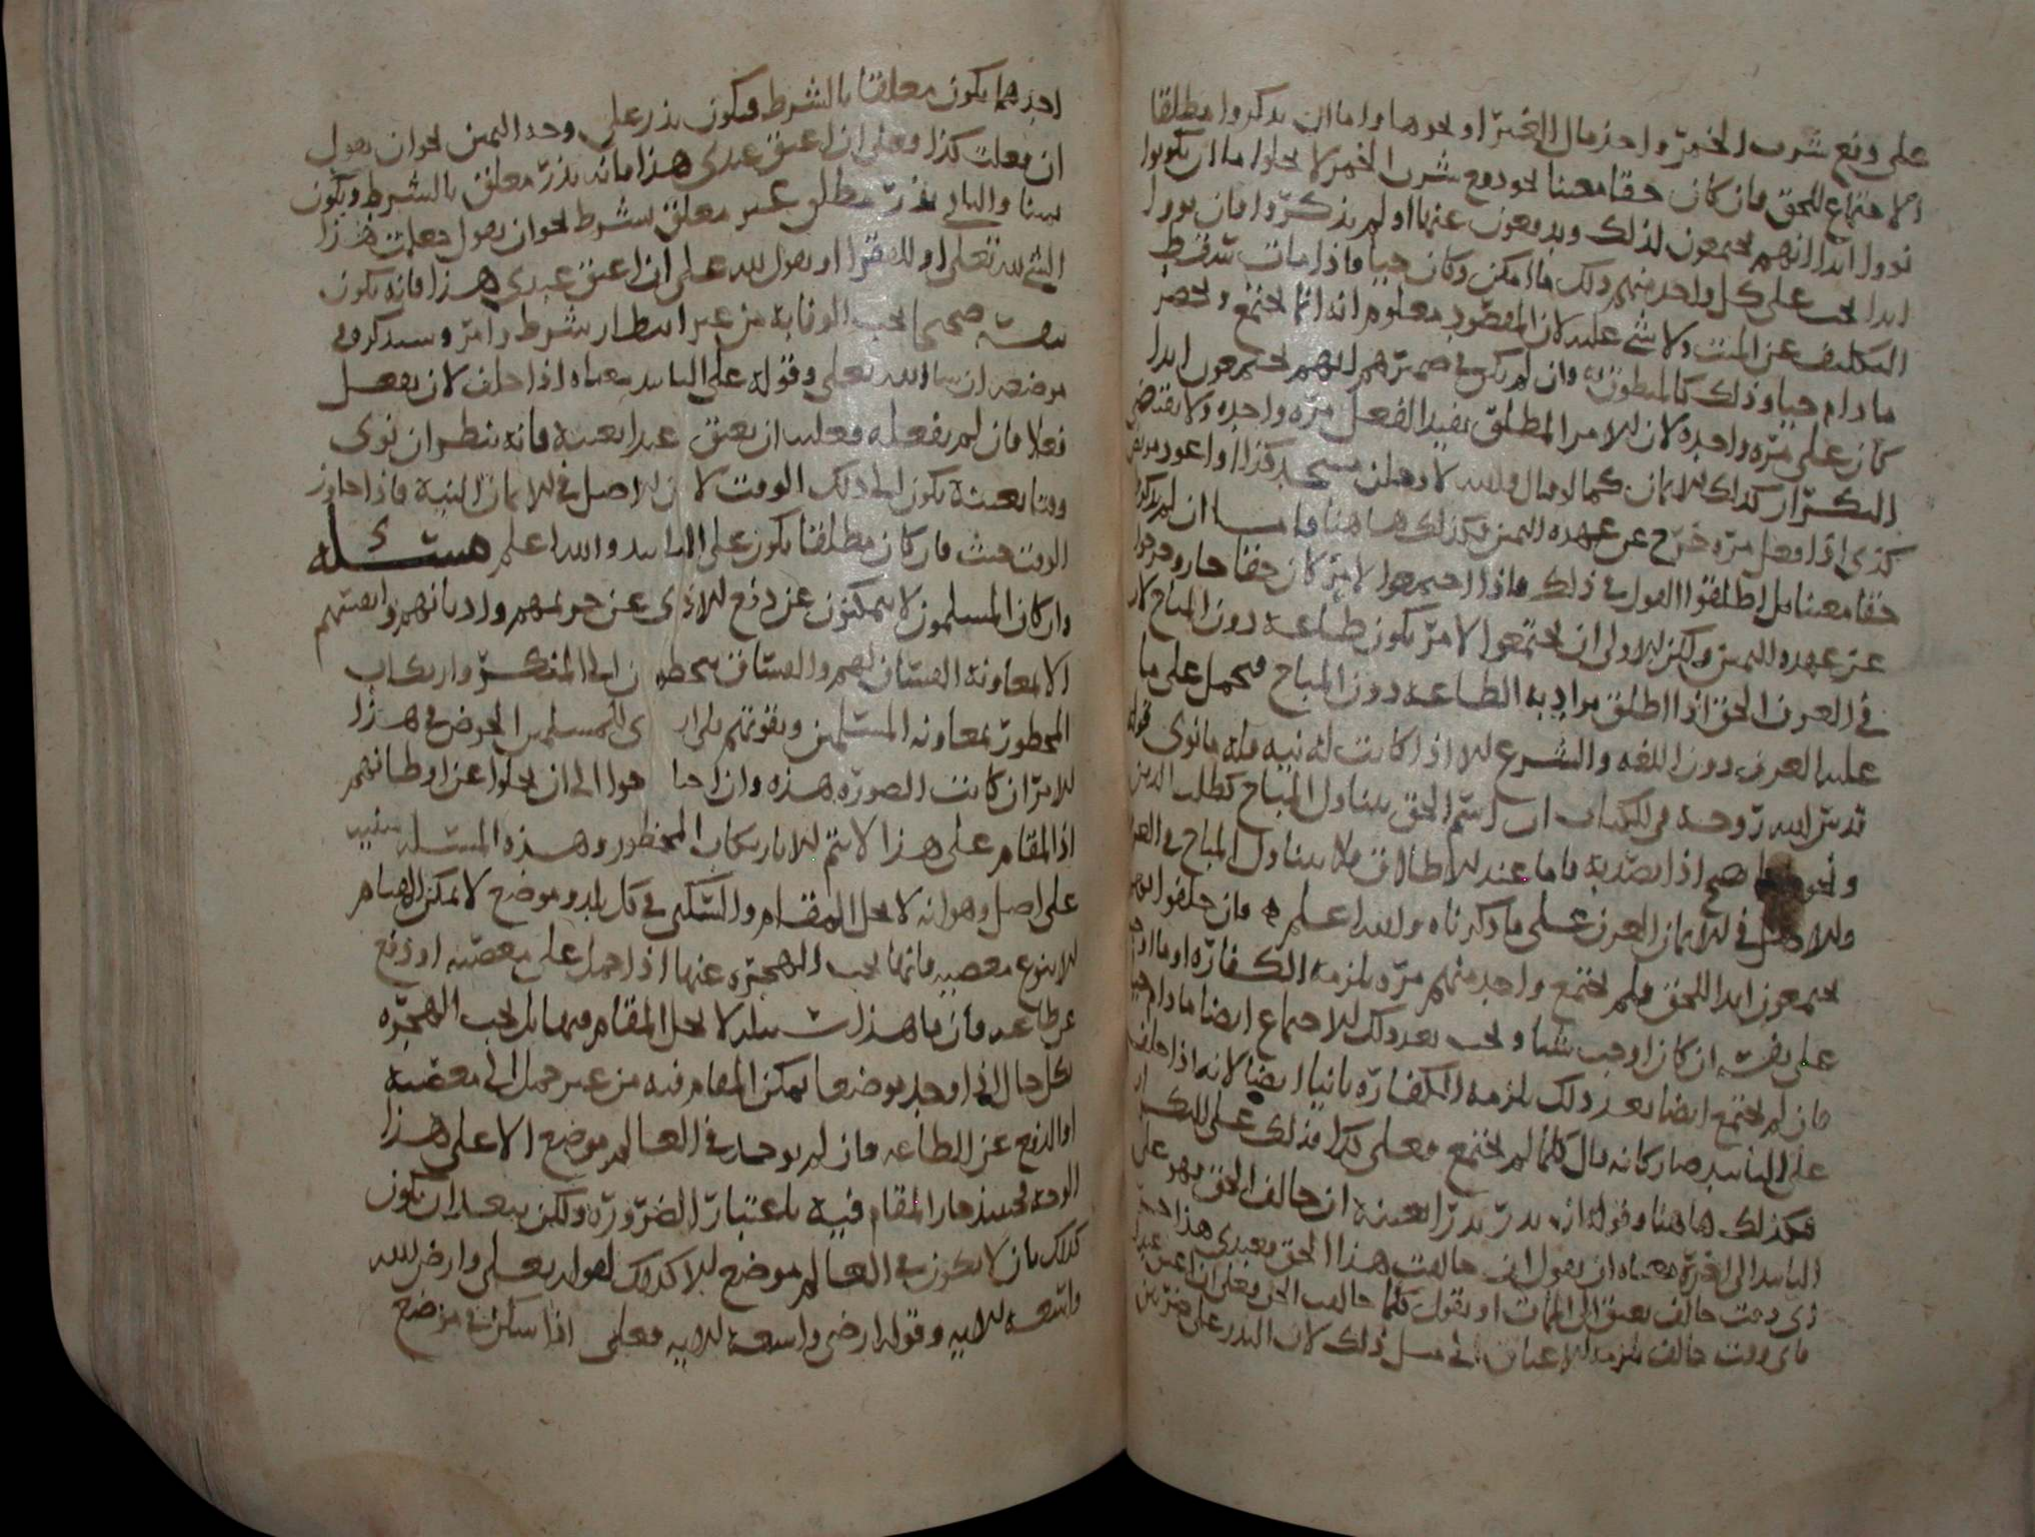 على دفع شرب الخمر واخذ مال الغير او نحوها واما ان يذكروا مطلقا
الاجتماع للحق فان كان حقا معينا نحو دفع شرب الخمر لا يخلوا اما ان يكونوا
نووا ابدا انهم يجتمعون لذلك ويدفعون عنها او لم يذكروا فان نووا
ابدا يجب على كل واحد منهم ذلك ما امكن وكان حيا واذا مات سقط
التكليف عن الميت ولا شي عليه لان المقصود معلوم انه انما يجتمع ويحضر
ما دام حيا وذلك كالمنطوق به وان لم يكن في ضميرهم انهم يجتمعون ابدا
كان على مرة واحدة لان الامر المطلق يفيد الفعل مرة واحدة ولا يقتضي
التكرار كذلك الايمان كما لو قال والله لادخلن مسجد كذا او اعود مريض
كذى اذا فعل مرة خرج عن عهدة اليمين فكذلك هاهنا فاما ان لم يذكروا
حقا معينا بل اطلقوا القول في ذلك فاذا اجتمعوا لامر كان حقا جاز وخرجوا
عن عهدة اليمين ولكن الاولى ان يجتمعوا لامر يكون طاعة دون المباح لان
في العرف الحق اذا اطلق يراد به الطاعة دون المباح فيحمل على ما
عليه العرف دون اللغة والشرع الا اذا كانت له نية فله ما نوى قوله
قدس الله روحه في الكتاب ان اسم الحق يتناول المباح كطلب الدين
ونحوه صح اذا قصد به فاما عند الاطلاق فلا يتناول المباح في العرف
والاصل في الايمان العرف على ما ذكرناه والله اعلم فان حلفوا انهم
يجتمعون ابدا للحق فلم يجتمع واحد منهم مرة يلزمه الكفارة او ما اوجب
على نفسه ان كان اوجب شيا ويجب بعد ذلك الاجتماع ايضا ما دام حيا
فان لم يجتمع ايضا بعد ذلك يلزمه الكفارة ثانيا ايضا لانه اذا حلف
على التابيد صار كانه قال كلما لم يجتمع فعلي كذا فذلك على التكرار
فكذلك هاهنا وقوله ان نذر نذرا بعينه ان خالف الحق فهو على
التابيد الى اخره معناه ان يقول ان خالفت هذا الحق فعبدي هذا حر
اي وقت خالف يعتق الى الممات او يقول كلما خالفت الحق فعلي ان اعتق عبدا
فاي وقت خالف يلزمه الاعتاق الى مثل ذلك لان النذر على ضربين
احدهما يكون معلقا بالشرط فيكون نذر على وجه اليمين نحو ان يقول
ان فعلت كذا فعلي ان اعتق عبدي هذا فانه نذر معلق بالشرط ويكون
يمينا والثاني نذر مطلق غير معلق بشرط نحو ان يقول جعلت هذا
الشي لله تعلى او للفقرا او يقول لله علي ان اعتق عبدي هذا فانه يكون
بنفسه صحيحا يجب الوفا به من غير انتظار شرط وامر وسنذكره في
موضعه ان شا الله تعلى وقوله على التابيد معناه اذا حلف لان يفعل
فعلا فان لم يفعله فعليه ان يعتق عبدا بعينه فانه ينظر ان نوى
وقتا بعينه يكون الى ذلك الوقت لان الاصل في الايمان النية فاذا جاوز
الوقت حنث فان كان مطلقا يكون على التابيد والله اعلم مسئلة
وان كان المسلمون لا يتمكنون عن دفع الاذى عن حريمهم واديانهم وانفسهم
الا بمعاونة الفساق لهم والفساق يتخطون الى المنكر وارتكاب
المحظور بمعاونة المسلمين وبقوتهم فلا ارى للمسلمين الخوض في هذا
الامر ان كانت الصورة هذه وان احتاجوا الى ان يجلوا عن اوطانهم
اذ المقام على هذا لا يتم الا بارتكاب المحظور وهذه المسئلة مبنية
على اصل وهو انه لا يحل المقام والسكنى في كل بلد وموضع لا يمكن المقام
الا بنوع معصية فانما يجب الهجرة عنها اذا حمل على معصية او دفع
عن طاعة فان ما هذا سبيله لا يحل المقام فيها بل يجب الهجرة
بكل حال اذا وجد موضعا يمكن المقام فيه من غير حمل الى معصية
او الدفع عن الطاعة فان لم يوجد في العالم موضع الا على هذا
الوجه فحينئذ جاز المقام فيه باعتبار الضرورة ولكن يبعد ان يكون
كذلك بان لا يكون في العالم موضع الا كذلك لقوله تعلى وارض الله
واسعة الاية وقوله ارضي واسعة الاية فعلى اذا سكن في موضع